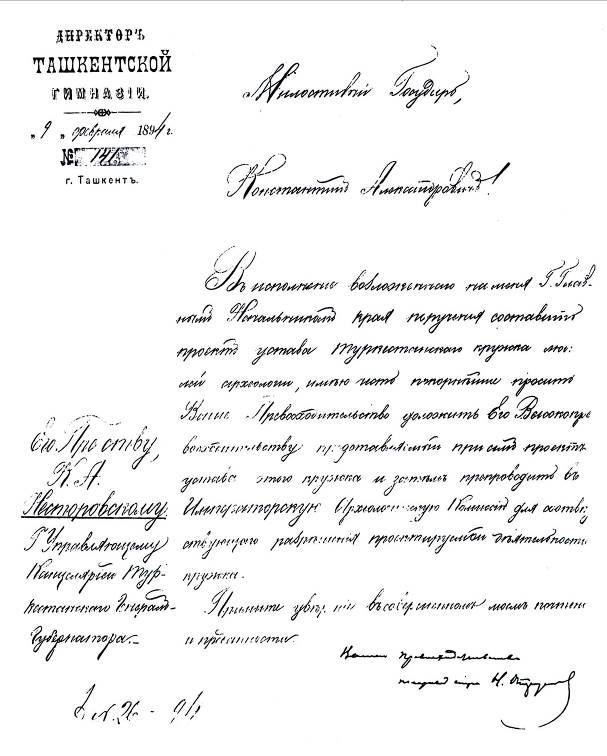 ДИРЕКТОРЪ
ТАШКЕНТСКОЙ
ГИМНАЗІИ.
„ 9 „ февраля 1894 г.
№ 141
г. Ташкентъ.
Милостивый Государь,
Константинъ Александровичъ!
Въ исполненіе возложеннаго на меня Г. Глав-
нымъ Начальникомъ края порученія составить
проектъ устава Туркестанскаго кружка лю-
археологіи, имѣю честь покорнѣйше просить
Ваше Превосходительство доложить Его Высокопре-
восходительству представляемый при семъ проектъ
устава этого кружка и затѣмъ препроводить въ
Императорскую Археологическую Комиссію для соотвѣт-
ствующаго разрѣшенія проектируемой дѣятельности
кружка.
Примите увѣреніе въ совершенномъ моемъ почтеніи
и преданности.
Вашего Превосходительства
Его Пр-ству,
К. А.
Несторовскому.
Г. Управляющему
Канцеляріей Тур-
кестанскаго Генералъ-
Губернатора.